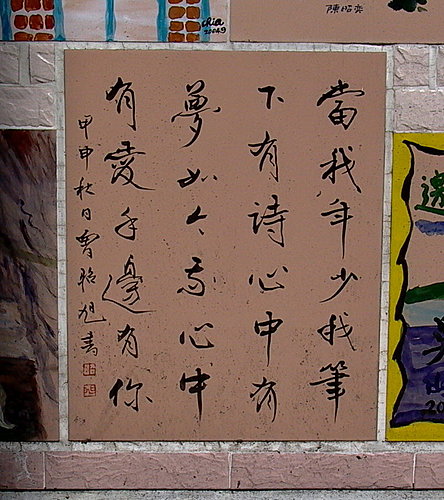 chia
2004.9
當我年少我筆
下有詩心中有
夢如今我心中
有愛手邊有你
甲申秋日曾昭旭書